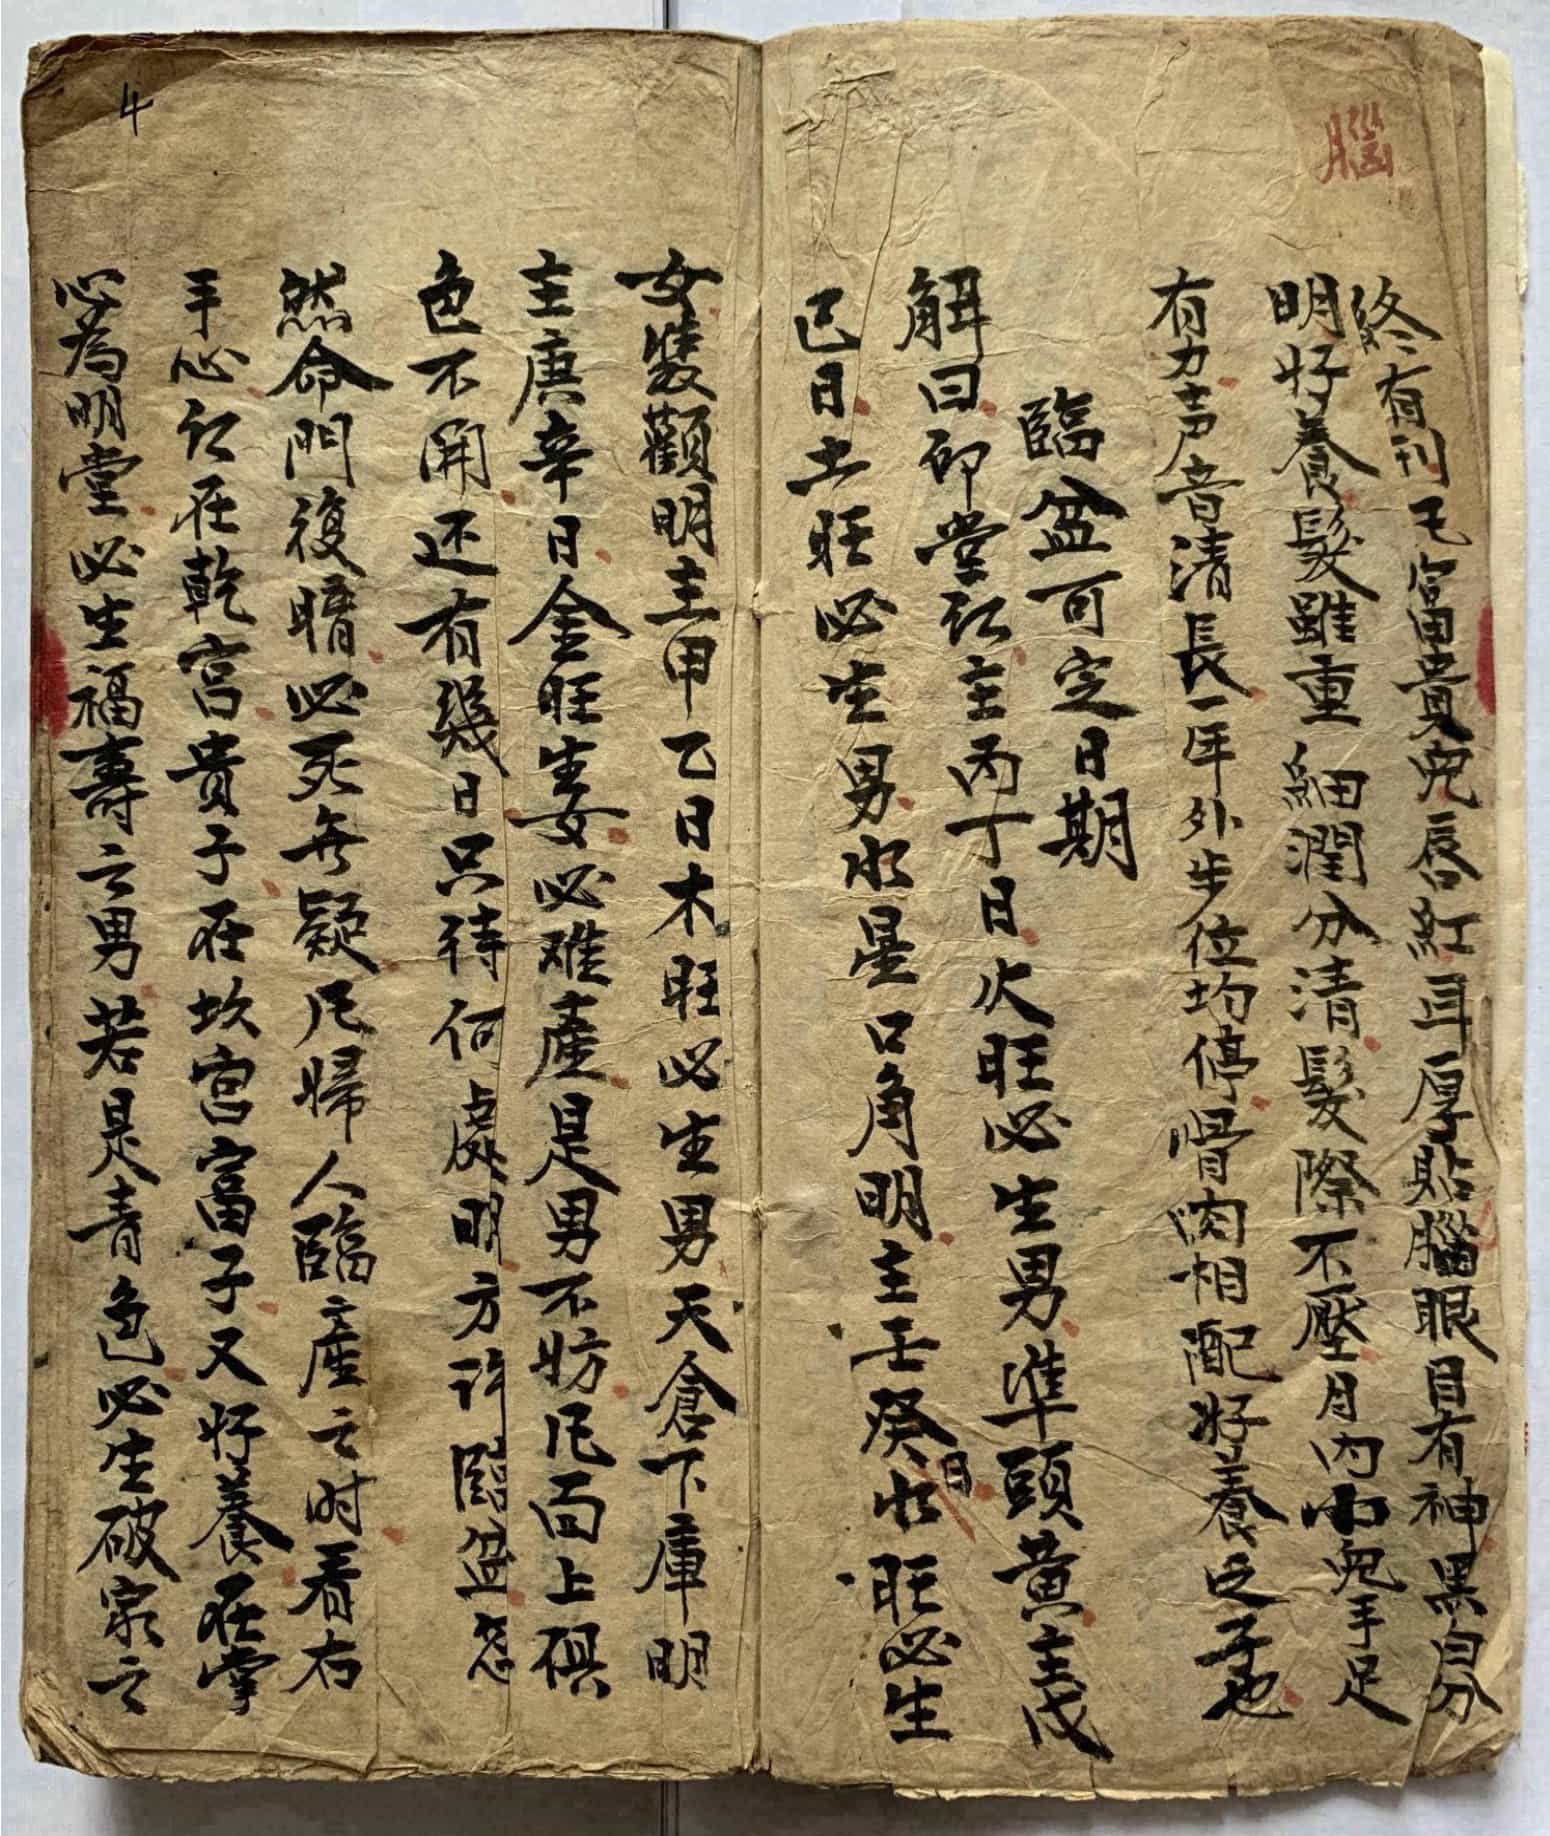 腦
終有刊毛富貴兒唇紅耳厚貼腦眼目有神黑白分
明好養髮雖重細潤分清髮際不壓月內小兒手足
有力声音清長一年外步位均停骨肉相配好養之子也
臨盆可定日期
解曰印堂红主丙丁日火旺必生男準頭黃主戊
己日土旺必生男水星口角明主壬癸日水旺必生
女雙顴明主甲乙日木旺必生男天倉下庫明
主庚辛日金旺生女必难產是男不妨凡面上俱
色不開还有幾日只待何處明方許臨盆忽
然命門復暗必死無疑凡婦人臨產之时看右
手心红在乾宫貴子在坎宫富子又好養在掌
心為明堂必生福壽之男若是青色必生破家之
4